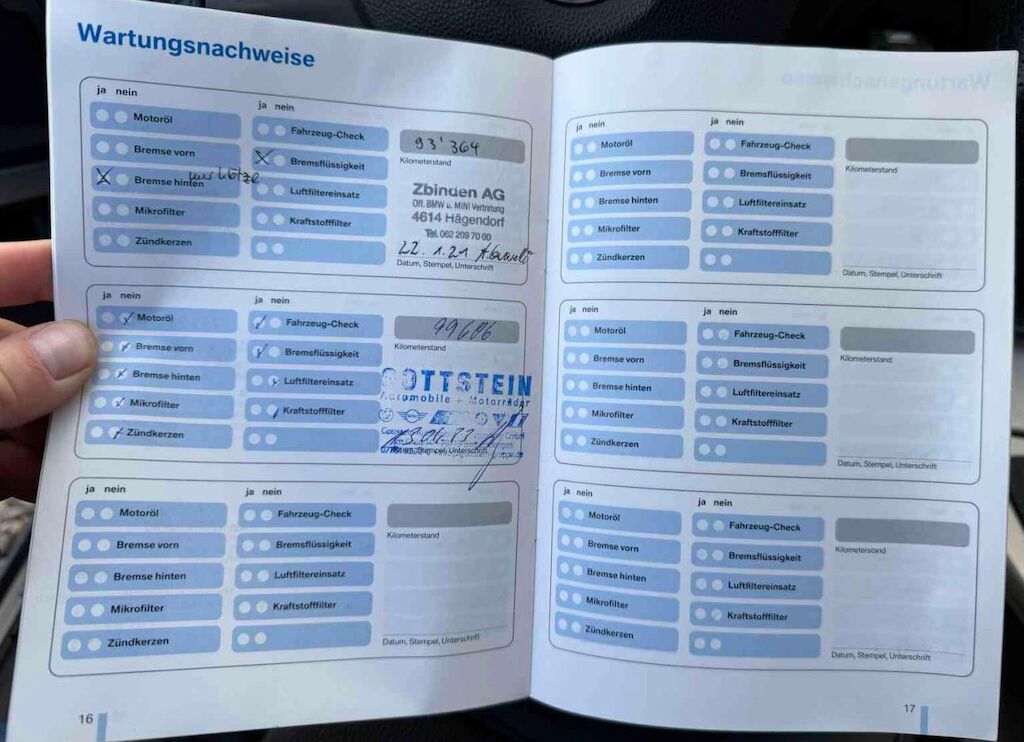 Wartungsnachweise
ja nein
ja nein
Motoröl
Bremse vorn
Bremse hinten
Mikrofilter
Zündkerzen
Fahrzeug-Check
Bremsflüssigkeit
Luftfiltereinsatz
Kraftstofffilter
93'364
Kilometerstand
Zbinden AG
Off. BMW u. MINI Vertretung
4614 Hägendorf
Tel. 062 209 70 00
22.1.21
Datum, Stempel, Unterschrift
ja nein
ja nein
Motoröl
Bremse vorn
Bremse hinten
Mikrofilter
Zündkerzen
Fahrzeug-Check
Bremsflüssigkeit
Luftfiltereinsatz
Kraftstofffilter
Kilometerstand
GOTTSTEIN
Automobile + Motorräder
Stempel, Unterschrift
ja nein
ja nein
Motoröl
Bremse vorn
Bremse hinten
Mikrofilter
Zündkerzen
Fahrzeug-Check
Bremsflüssigkeit
Luftfiltereinsatz
Kraftstofffilter
Kilometerstand
Datum, Stempel, Unterschrift
16
ja nein
ja nein
Motoröl
Bremse vorn
Bremse hinten
Mikrofilter
Zündkerzen
Fahrzeug-Check
Bremsflüssigkeit
Luftfiltereinsatz
Kraftstofffilter
Kilometerstand
Datum, Stempel, Unterschrift
ja nein
ja nein
Motoröl
Bremse vorn
Bremse hinten
Mikrofilter
Zündkerzen
Fahrzeug-Check
Bremsflüssigkeit
Luftfiltereinsatz
Kraftstofffilter
Kilometerstand
Datum, Stempel, Unterschrift
ja nein
ja nein
Motoröl
Bremse vorn
Bremse hinten
Mikrofilter
Zündkerzen
Fahrzeug-Check
Bremsflüssigkeit
Luftfiltereinsatz
Kraftstofffilter
Kilometerstand
Datum, Stempel, Unterschrift
17